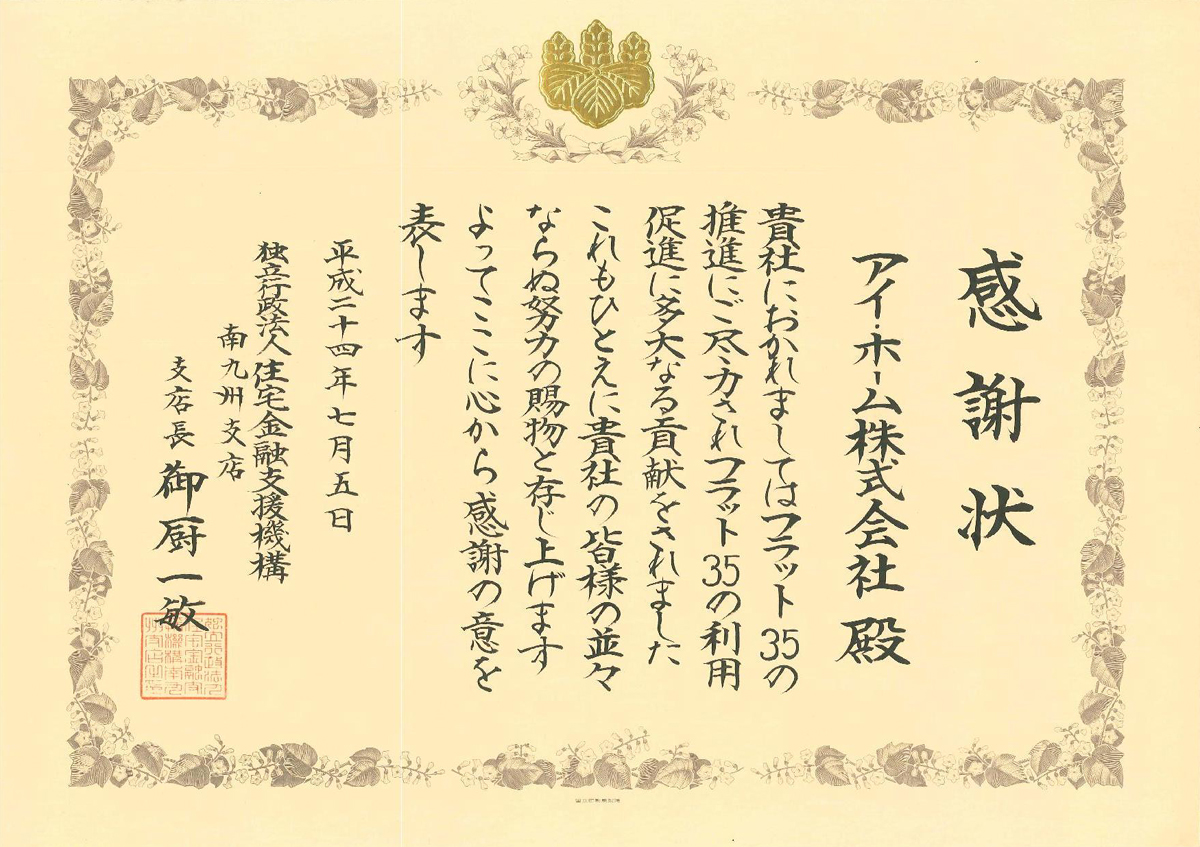 感謝状
アイ・ホーム株式会社 殿
貴社におかれましてはフラット35の
推進にご尽力されフラット35の利用
促進に多大なる貢献をされました
これもひとえに貴社の皆様の並々
ならぬ努力の賜物と存じ上げます
よってここに心から感謝の意を
表します
平成二十四年七月五日
独立行政法人住宅金融支援機構
南九州支店
支店長 御厨一敏